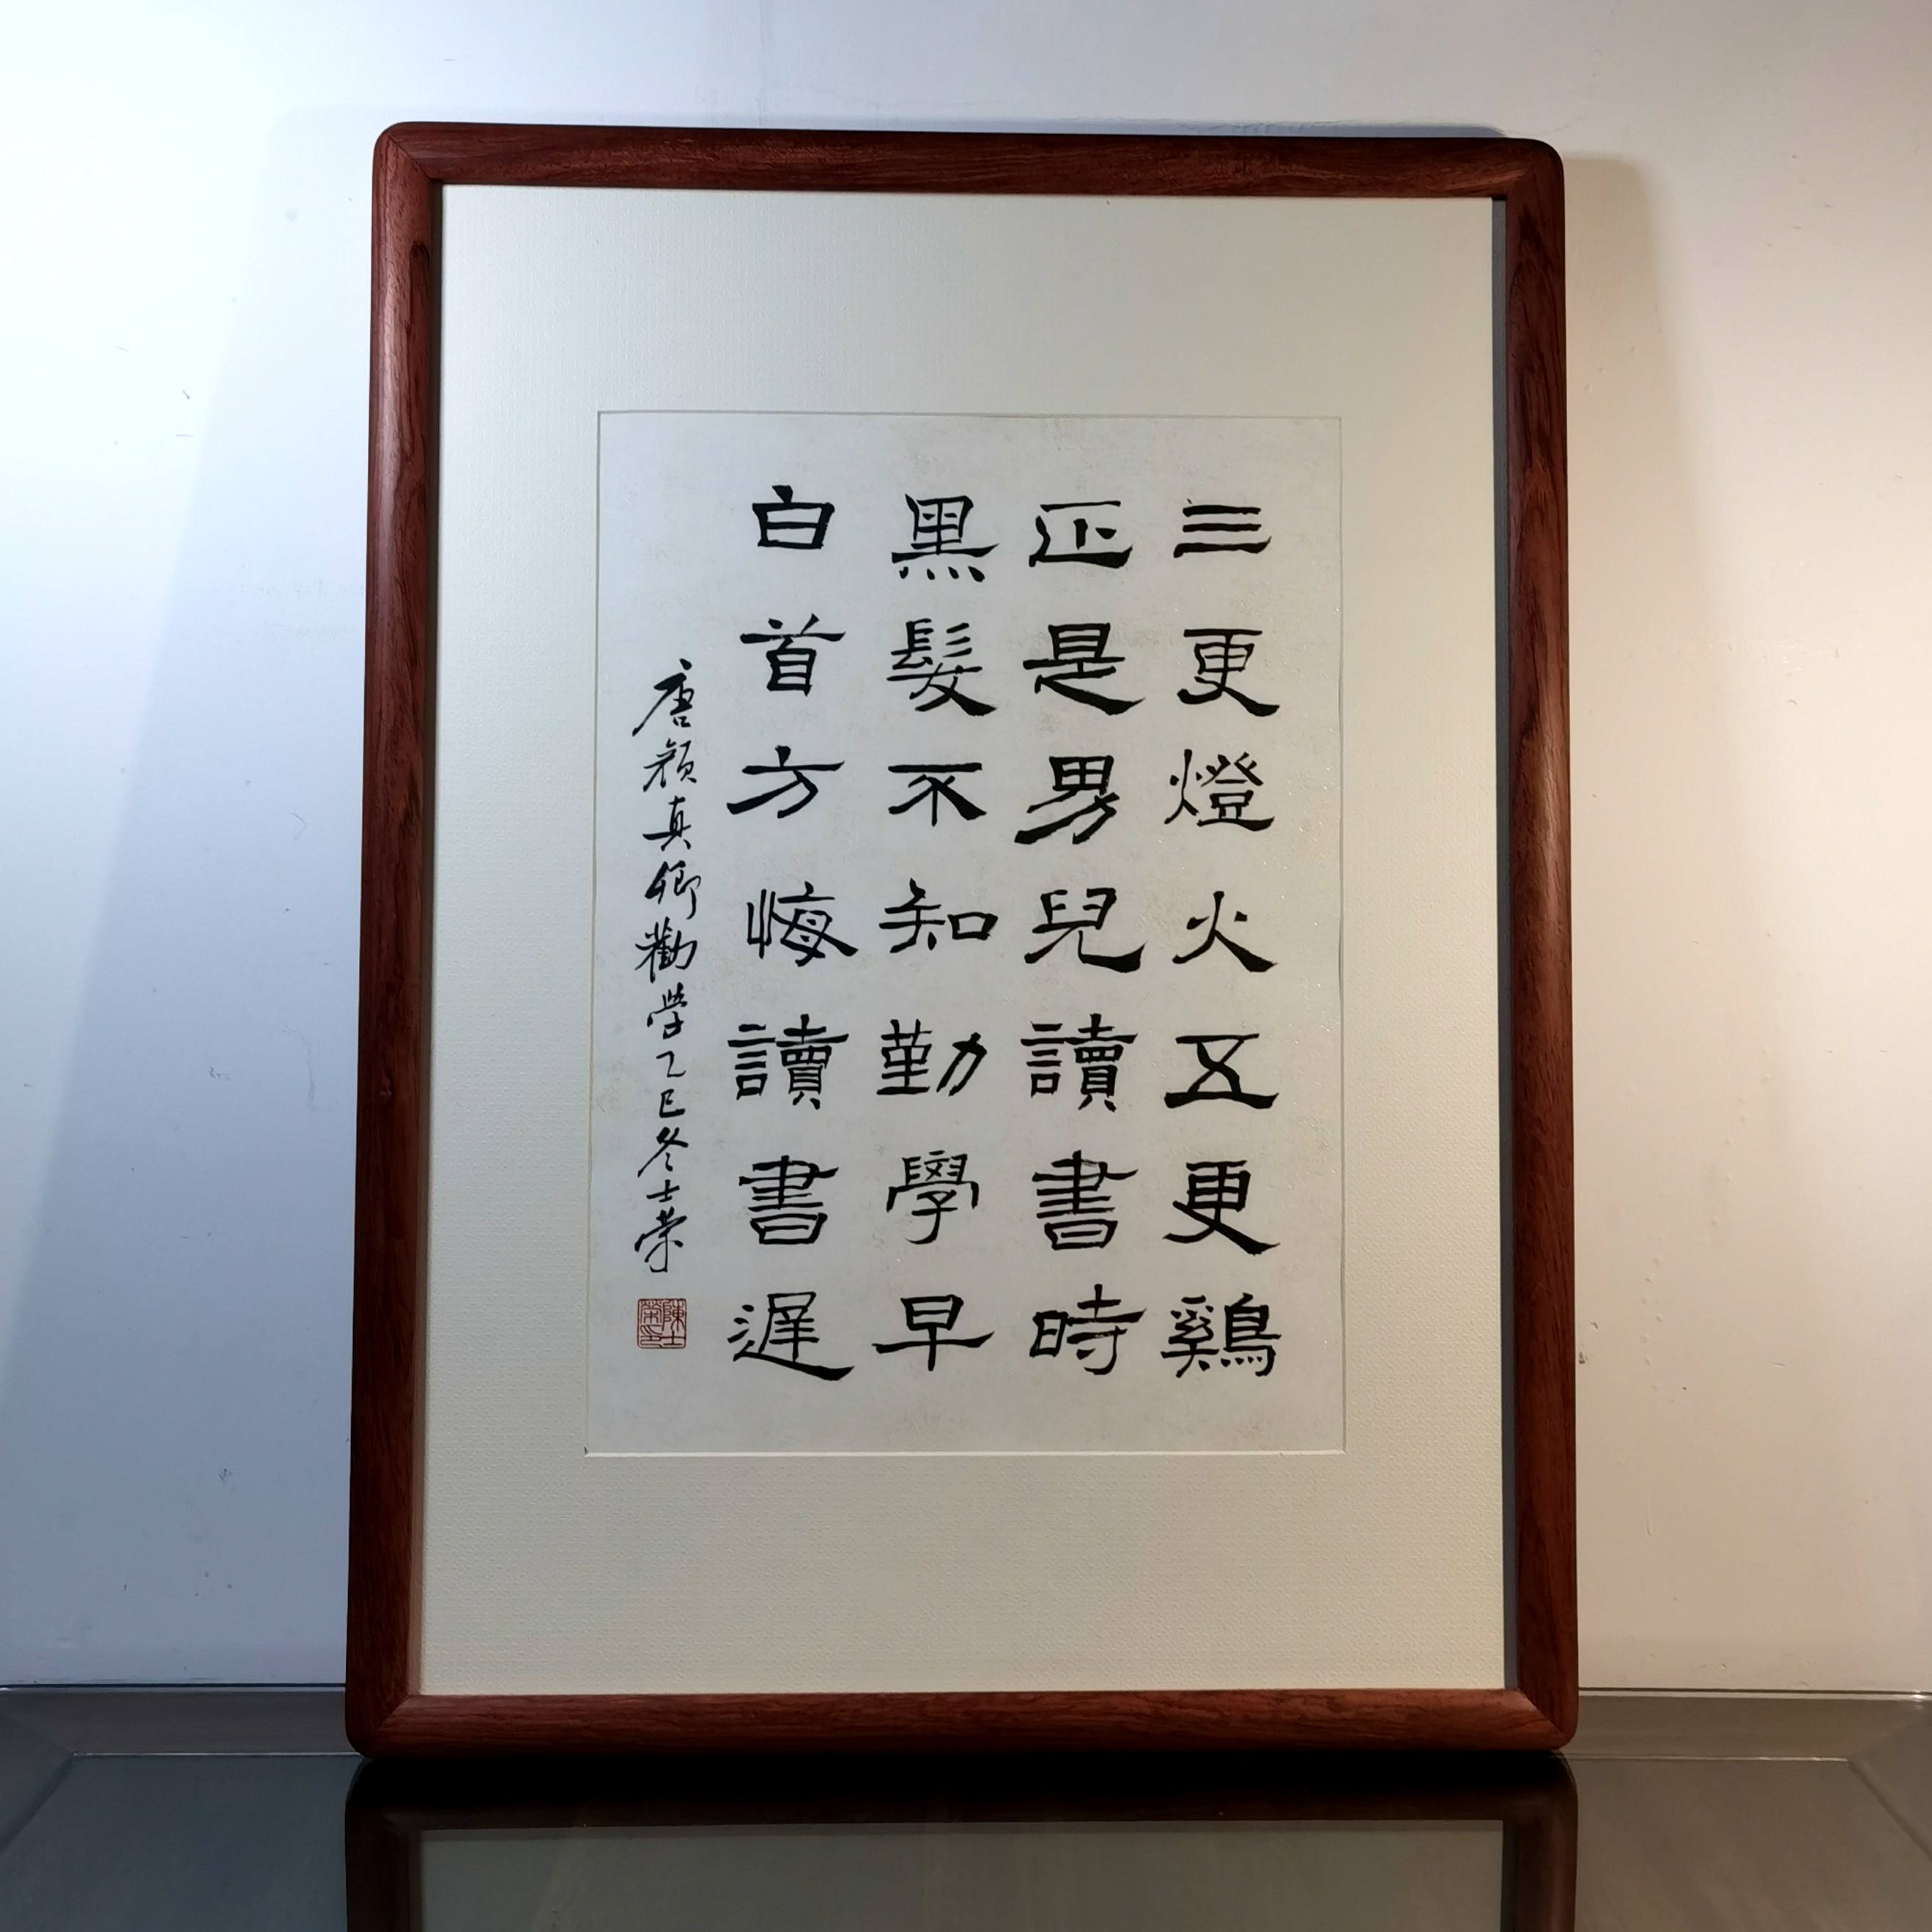 三更燈火五更鷄
正是男兒讀書時
黑髮不知勤學早
白首方悔讀書遲
唐顏真卿勸学乙巳冬士荣
陳士
榮印